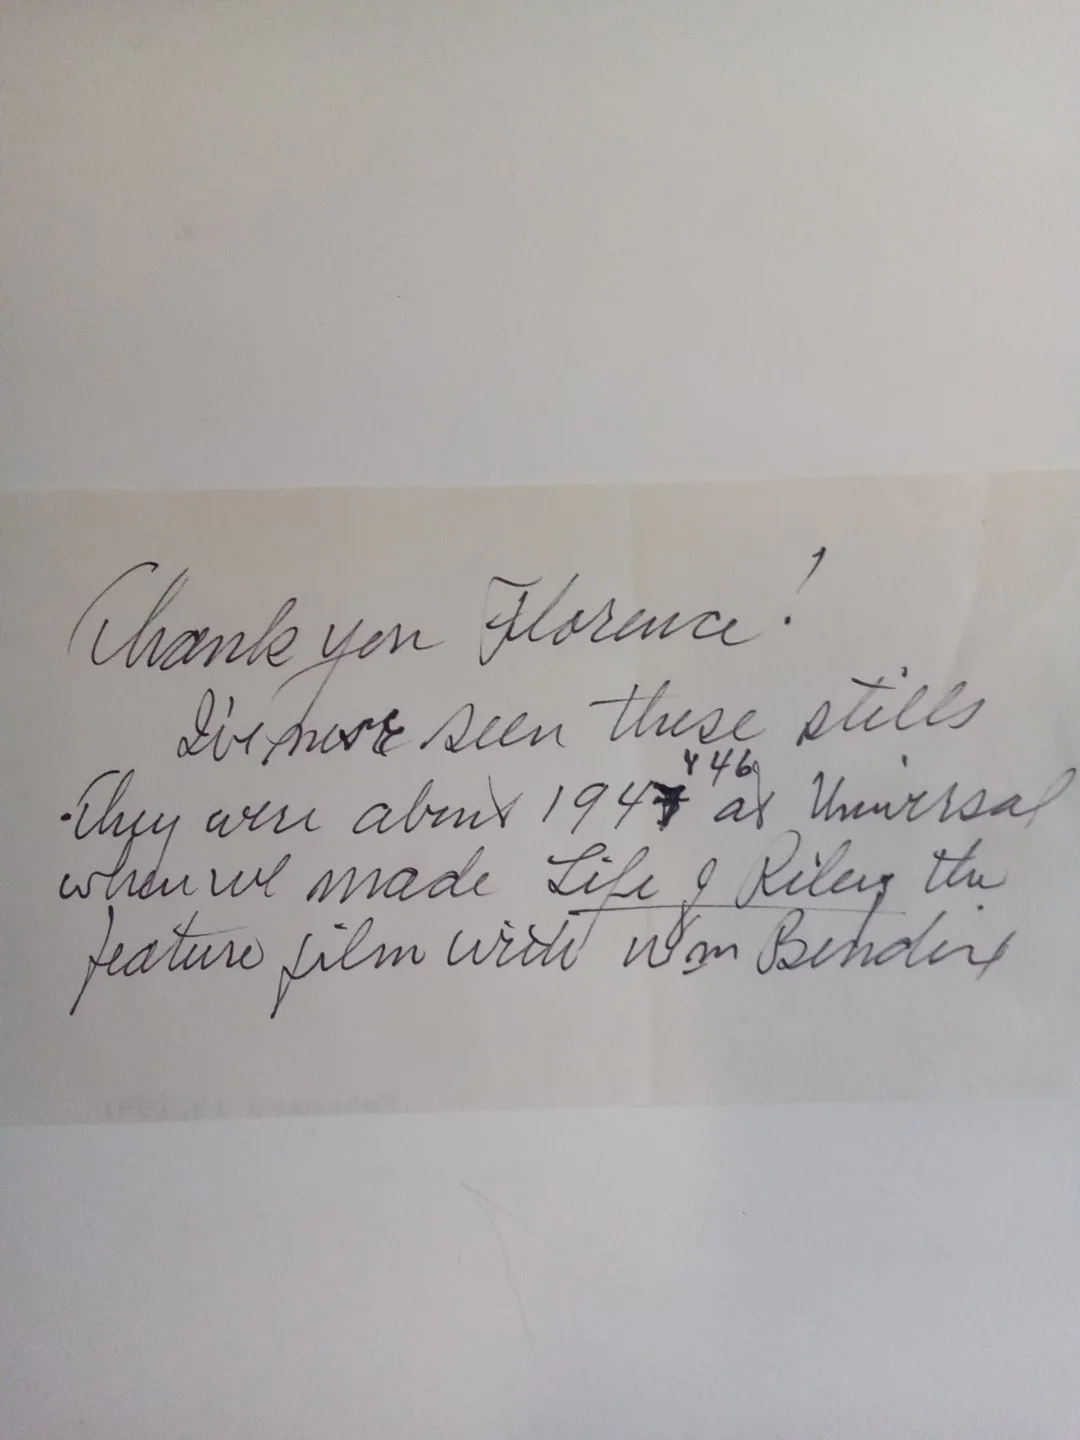 Thank you Florence!
I've never seen these stills
They were about 1947 & 46 at Universal
when we made Life of Riley the
feature film with Wm Bendix